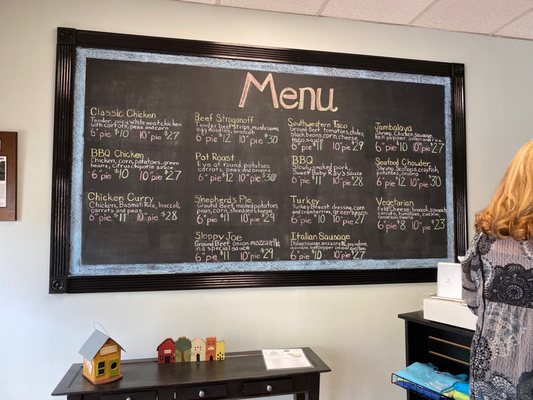 Menu
Classic Chicken
Tender, juicy white meat chicken
with carrots, peas and corn
6" pie $10 10" pie $27
BBQ Chicken
Chicken, corn, potatoes, green
beans, Chipotle
6" pie $10 10" pie $27
Chicken Curry
Chicken, Basmati Rice, broccoli,
carrots and peas
6" pie $11 10" pie $28
Beef Stroganoff
Tender beef strips, mushroom,
egg noodles, broccoli
6" pie $12 10" pie $30
Pot Roast
Eye of round, potatoes
carrots, peas and onions
6" pie $12 10" pie $30
Shepherd's Pie
Ground Beef, mashed potatoes
carrots, corn, shredded carrots
6" pie $11 10" pie $29
Sloppy Joe
Ground Beef, onion, mozzarella
6" pie $11 10" pie $29
Southwestern Taco
Ground Beef, tomatoes, chiles,
black beans, corn, cheese
6" pie $11 10" pie $29
BBQ
Slowly smoked pork
Sweet Baby Ray's sauce
6" pie $11 10" pie $28
Turkey
Turkey Breast, dressing, corn
and cranberries, green
6" pie $10 10" pie $27
Italian Sausage
Italian Sausage, mozzarella
6" pie $10 10" pie $27
Jambalaya
Shrimp, Chicken, sausage,
Bell pepper, onion, rice
6" pie $10 10" pie $27
Seafood Chowder
Shrimp, Scallops, crawfish,
potatoes
6" pie $12 10" pie $30
Vegetarian
Feta Cheese, broccoli,
carrots, tomatoes, zucchini,
6" pie $8 10" pie $23